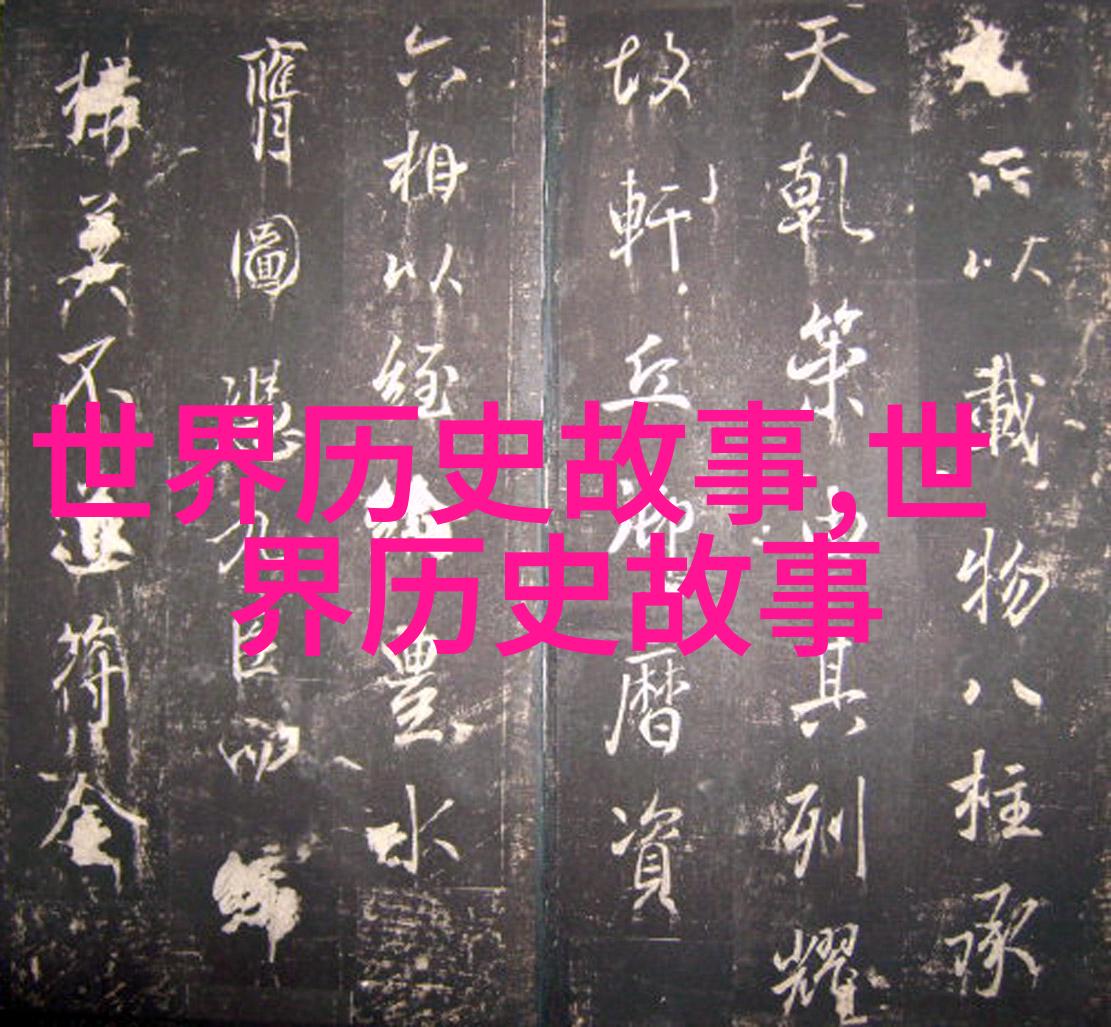 世界历史故事,世
界历史故事
所以載物八柱承
天乾策其列耀
故軒丘御曆資
六相以經綸豐水
膺圖憑九臣
構莫不符